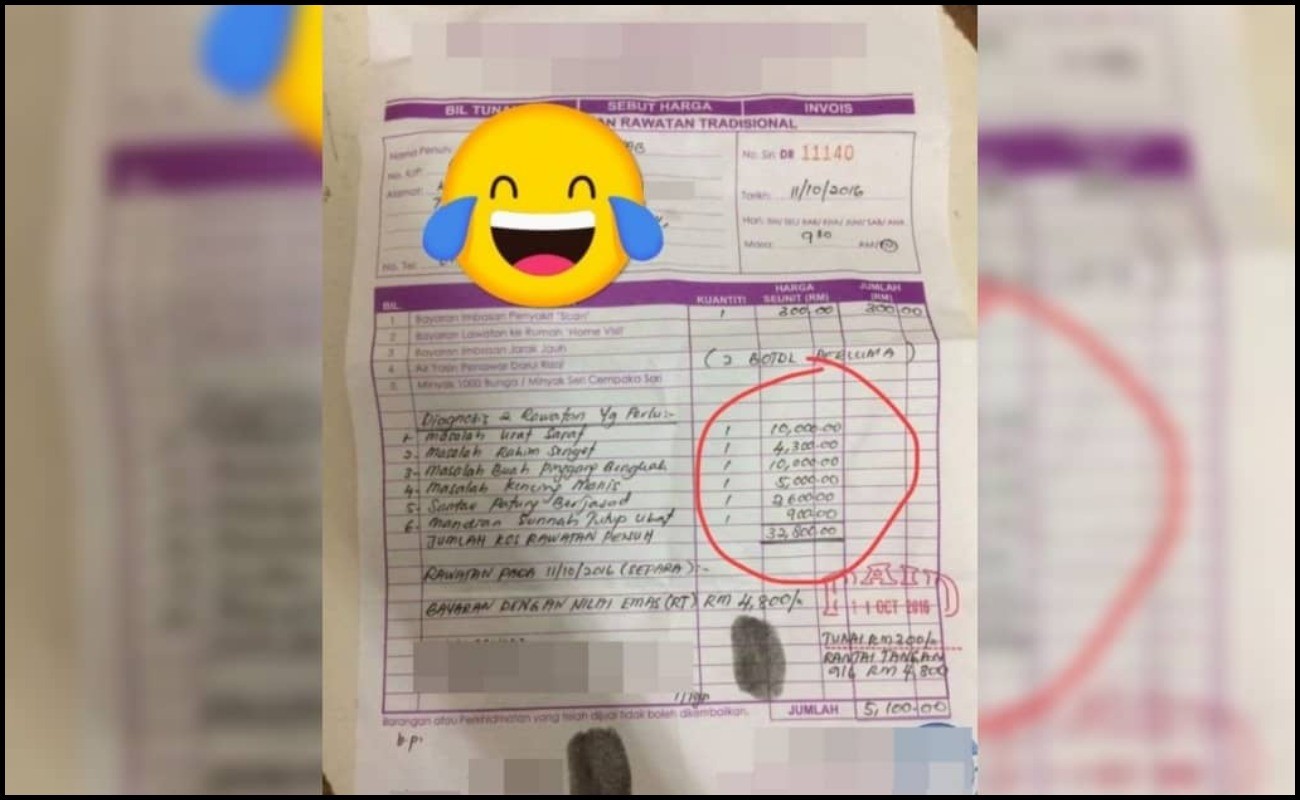 BIL TUNAI SEBUT HARGA INVOIS
RAWATAN TRADISIONAL
Nama Penuh:
No. Siri: DB 11140
No. K/P:
Alamat:
Tarikh: 11/10/2016
Hari:
Masa: 9 30 AM/
No. Tel:
BIL. KUANTITI HARGA SEUNIT (RM) JUMLAH (RM)
1 Bayaran Imbasan Penyakit 'Scan' 1 300.00 300.00
2 Bayaran Lawatan ke Rumah 'Home Visit'
3 Bayaran Imbasan Jarak Jauh
4 Air Yasin Penawar (2 BOTOL )
5 Minyak 1000 Bunga / Minyak Seri Cempaka Sari
Diagnosis & Rawatan Yg Perlu:-
1- Masalah Urat Saraf 1 10,000.00
2- Masalah Rahim 1 4,300.00
3- Masalah Buah Pinggang Bengkak 1 10,000.00
4- Masalah Kencing Manis 1 5,000.00
5- Santau Patung Berjasad 1 2600.00
6- Mandian Sunnah Tutup Ubat 1 900.00
JUMLAH KOS RAWATAN PENUH 32,800.00
RAWATAN PADA 11/10/2016 (SEPARA):-
PAID
11 OCT 2016
BAYARAN DENGAN NILAI EMAS (RT) RM 4,800/-
TUNAI RM 200/-
RANTAI TANGAN
916 RM 4,800
Barangan atau Perkhidmatan yang telah dijual tidak boleh dikembalikan.
JUMLAH 5,100.00
b.p.